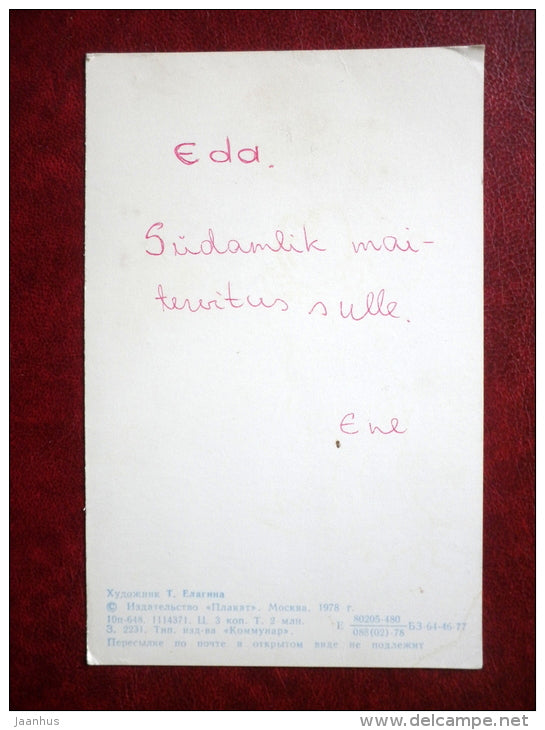 Eda.
Südamlik mai-
tervitus sulle.
Ene
Художник Т. Елагина
© Издательство «Плакат». Москва, 1978 г.
10п-648. 1114371. Ц. 3 коп. Т. 2 млн.
З. 2231. Тип. изд-ва «Коммунар».
Е 80205-480 / 088(02)-78 БЗ-64-46-77
Пересылке по почте в открытом виде не подлежит
jaanhus
www.delcampe.net